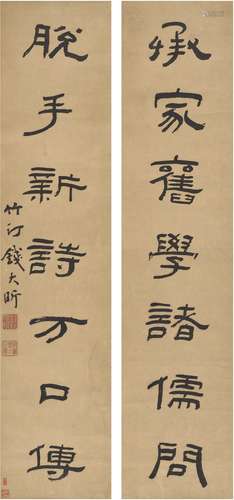 承家舊學諸儒問
脫手新詩万口傳
竹汀錢大昕